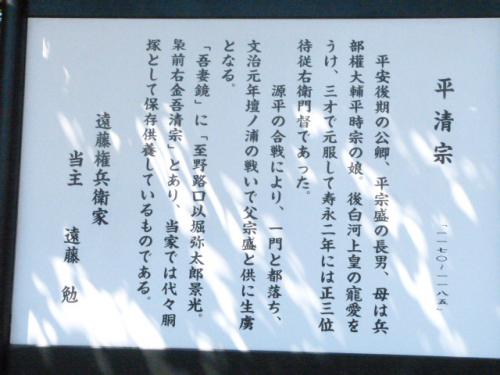 平清宗
「一一七〇〜一一八五」
平安後期の公卿、平宗盛の長男、母は兵
部権大輔平時宗の娘。後白河上皇の寵愛を
うけ、三才で元服して寿永二年には正三位
侍従右衛門督であった。
源平の合戦により、一門と都落ち、
文治元年壇ノ浦の戦いで父宗盛と供に生虜
となる。
「吾妻鏡」に「至野路口以堀弥太郎景光。
梟前右金吾清宗」とあり、当家では代々胴
塚として保存供養しているものである。
遠藤権兵衛家
当主 遠藤 勉